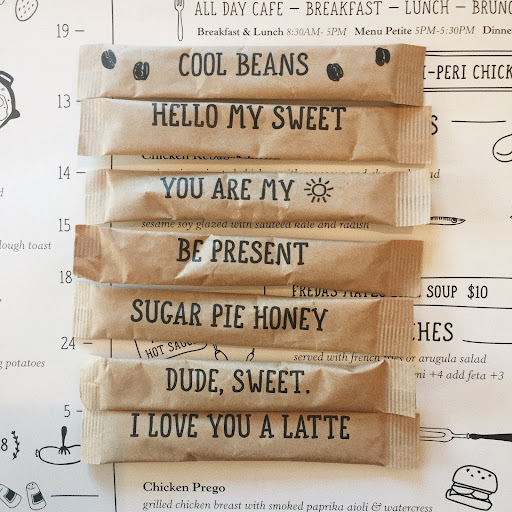 ALL DAY CAFE – BREAKFAST – LUNCH – BRUNC
19
Breakfast & Lunch 8:30AM- 5PM Menu Petite 5PM-5:30PM Dinne
COOL BEANS
I-PERI CHICK
13
HELLO MY SWEET
S
Chicken
14
YOU ARE MY
sesame soy glazed with sauteed kale and radish
15
lough toast
BE PRESENT
18
SOUP $10
SUGAR PIE HONEY
HES
24
HOT SAUCE
served with french fries or arugula salad
g potatoes
+4 add feta +3
DUDE, SWEET.
5
I LOVE YOU A LATTE
8
Chicken Prego
grilled chicken breast with smoked paprika aioli & watercress